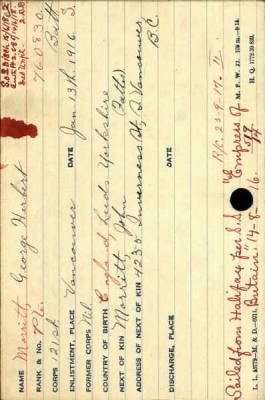 NAME Morritt, George Herbert
RANK & NO. Pte. 760830.
CORPS 121st Batt
ENLISTMENT, PLACE Vancouver DATE Jan 13th 1916
FORMER CORPS Nil
COUNTRY OF BIRTH England Leeds Yorkshire
NEXT OF KIN Morritt, John (Father)
ADDRESS OF NEXT OF KIN 4230 Inverness St, S. Vancouver, B.C.
DISCHARGE, PLACE DATE
R/C. 23-9-17
Sailed from Halifax per S.S. "Empress of
Britain" 14-8-16